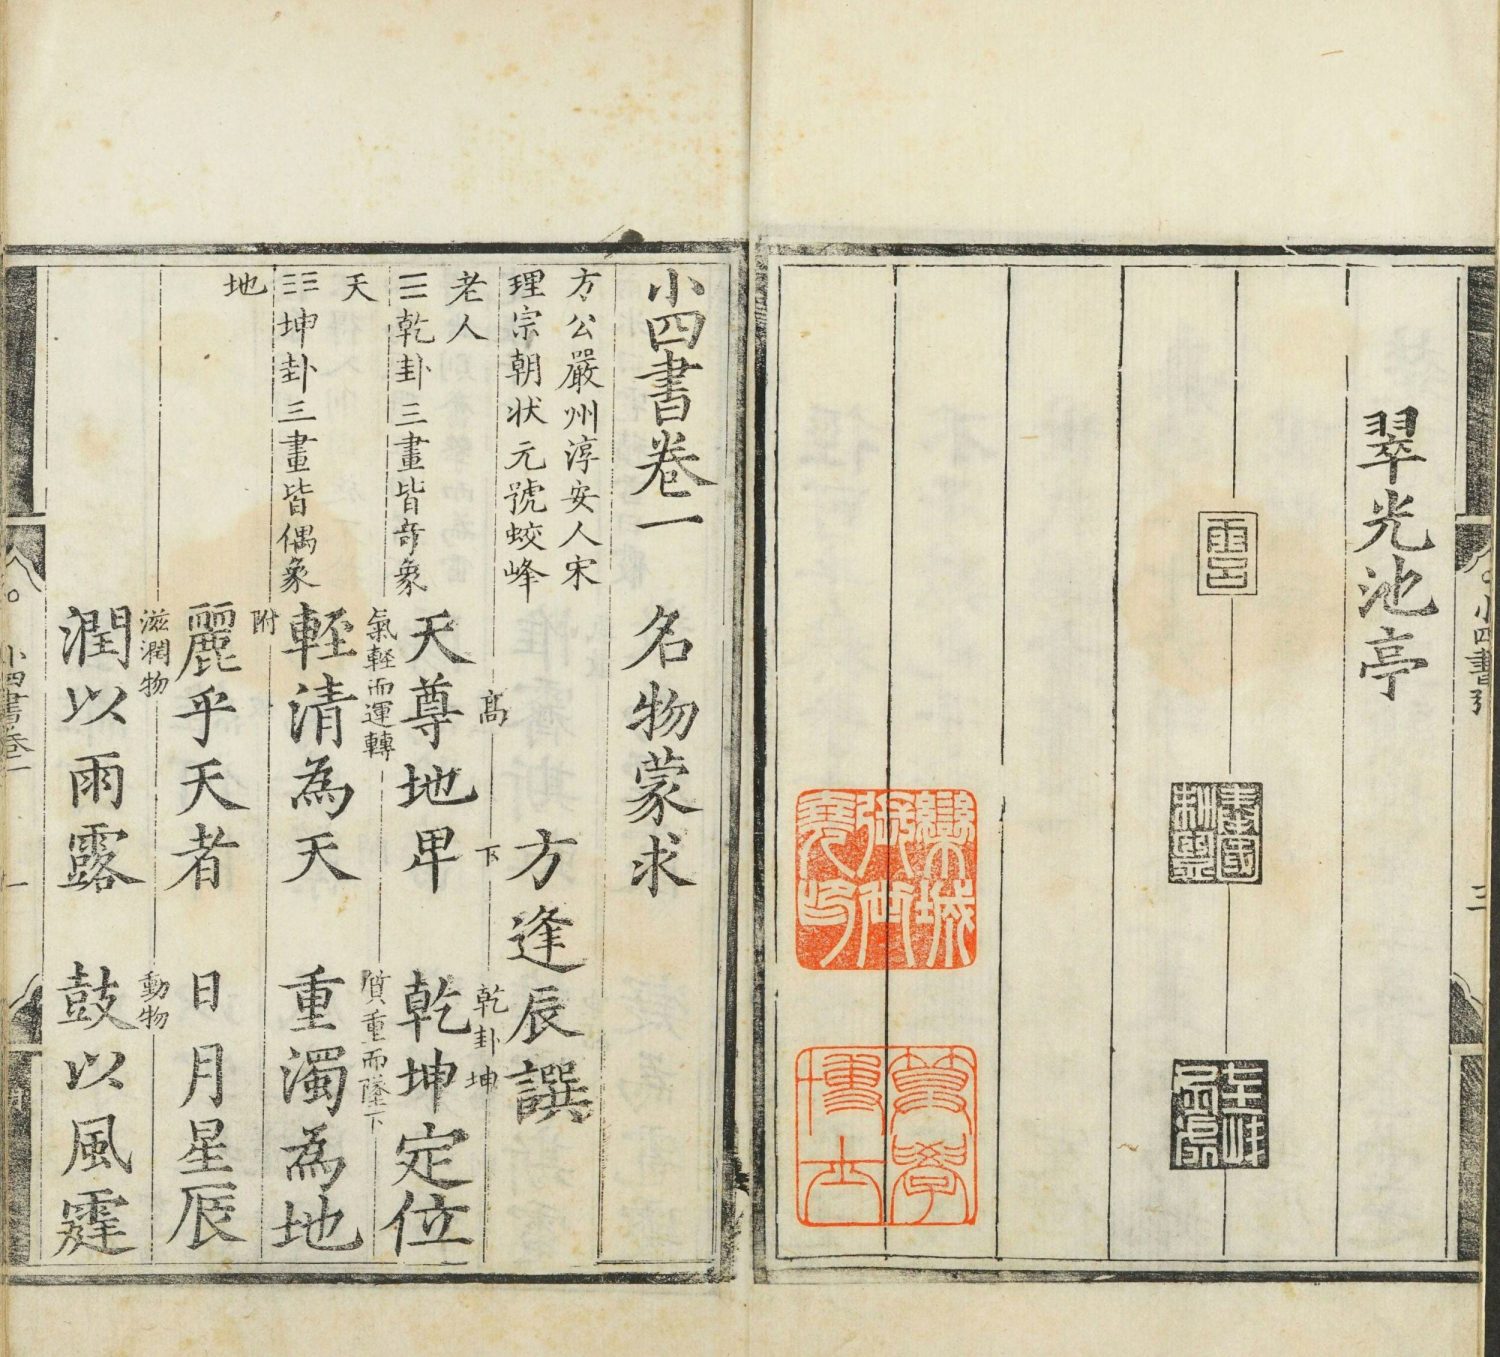 小四書引
三
翠光池亭
小四書卷一　名物蒙求
方公嚴州淳安人宋
理宗朝狀元號蛟峰
方逢辰譔
老人　高　下　乾卦坤
☰乾卦三畫皆奇象　天尊地卑　乾坤定位
天　氣輕而運轉　質重而墜下
☷坤卦三畫皆偶象　輕清為天　重濁為地
地　附
麗乎天者　日月星辰
滋潤物　動物
潤以雨露　鼓以風霆
小四書卷一
一